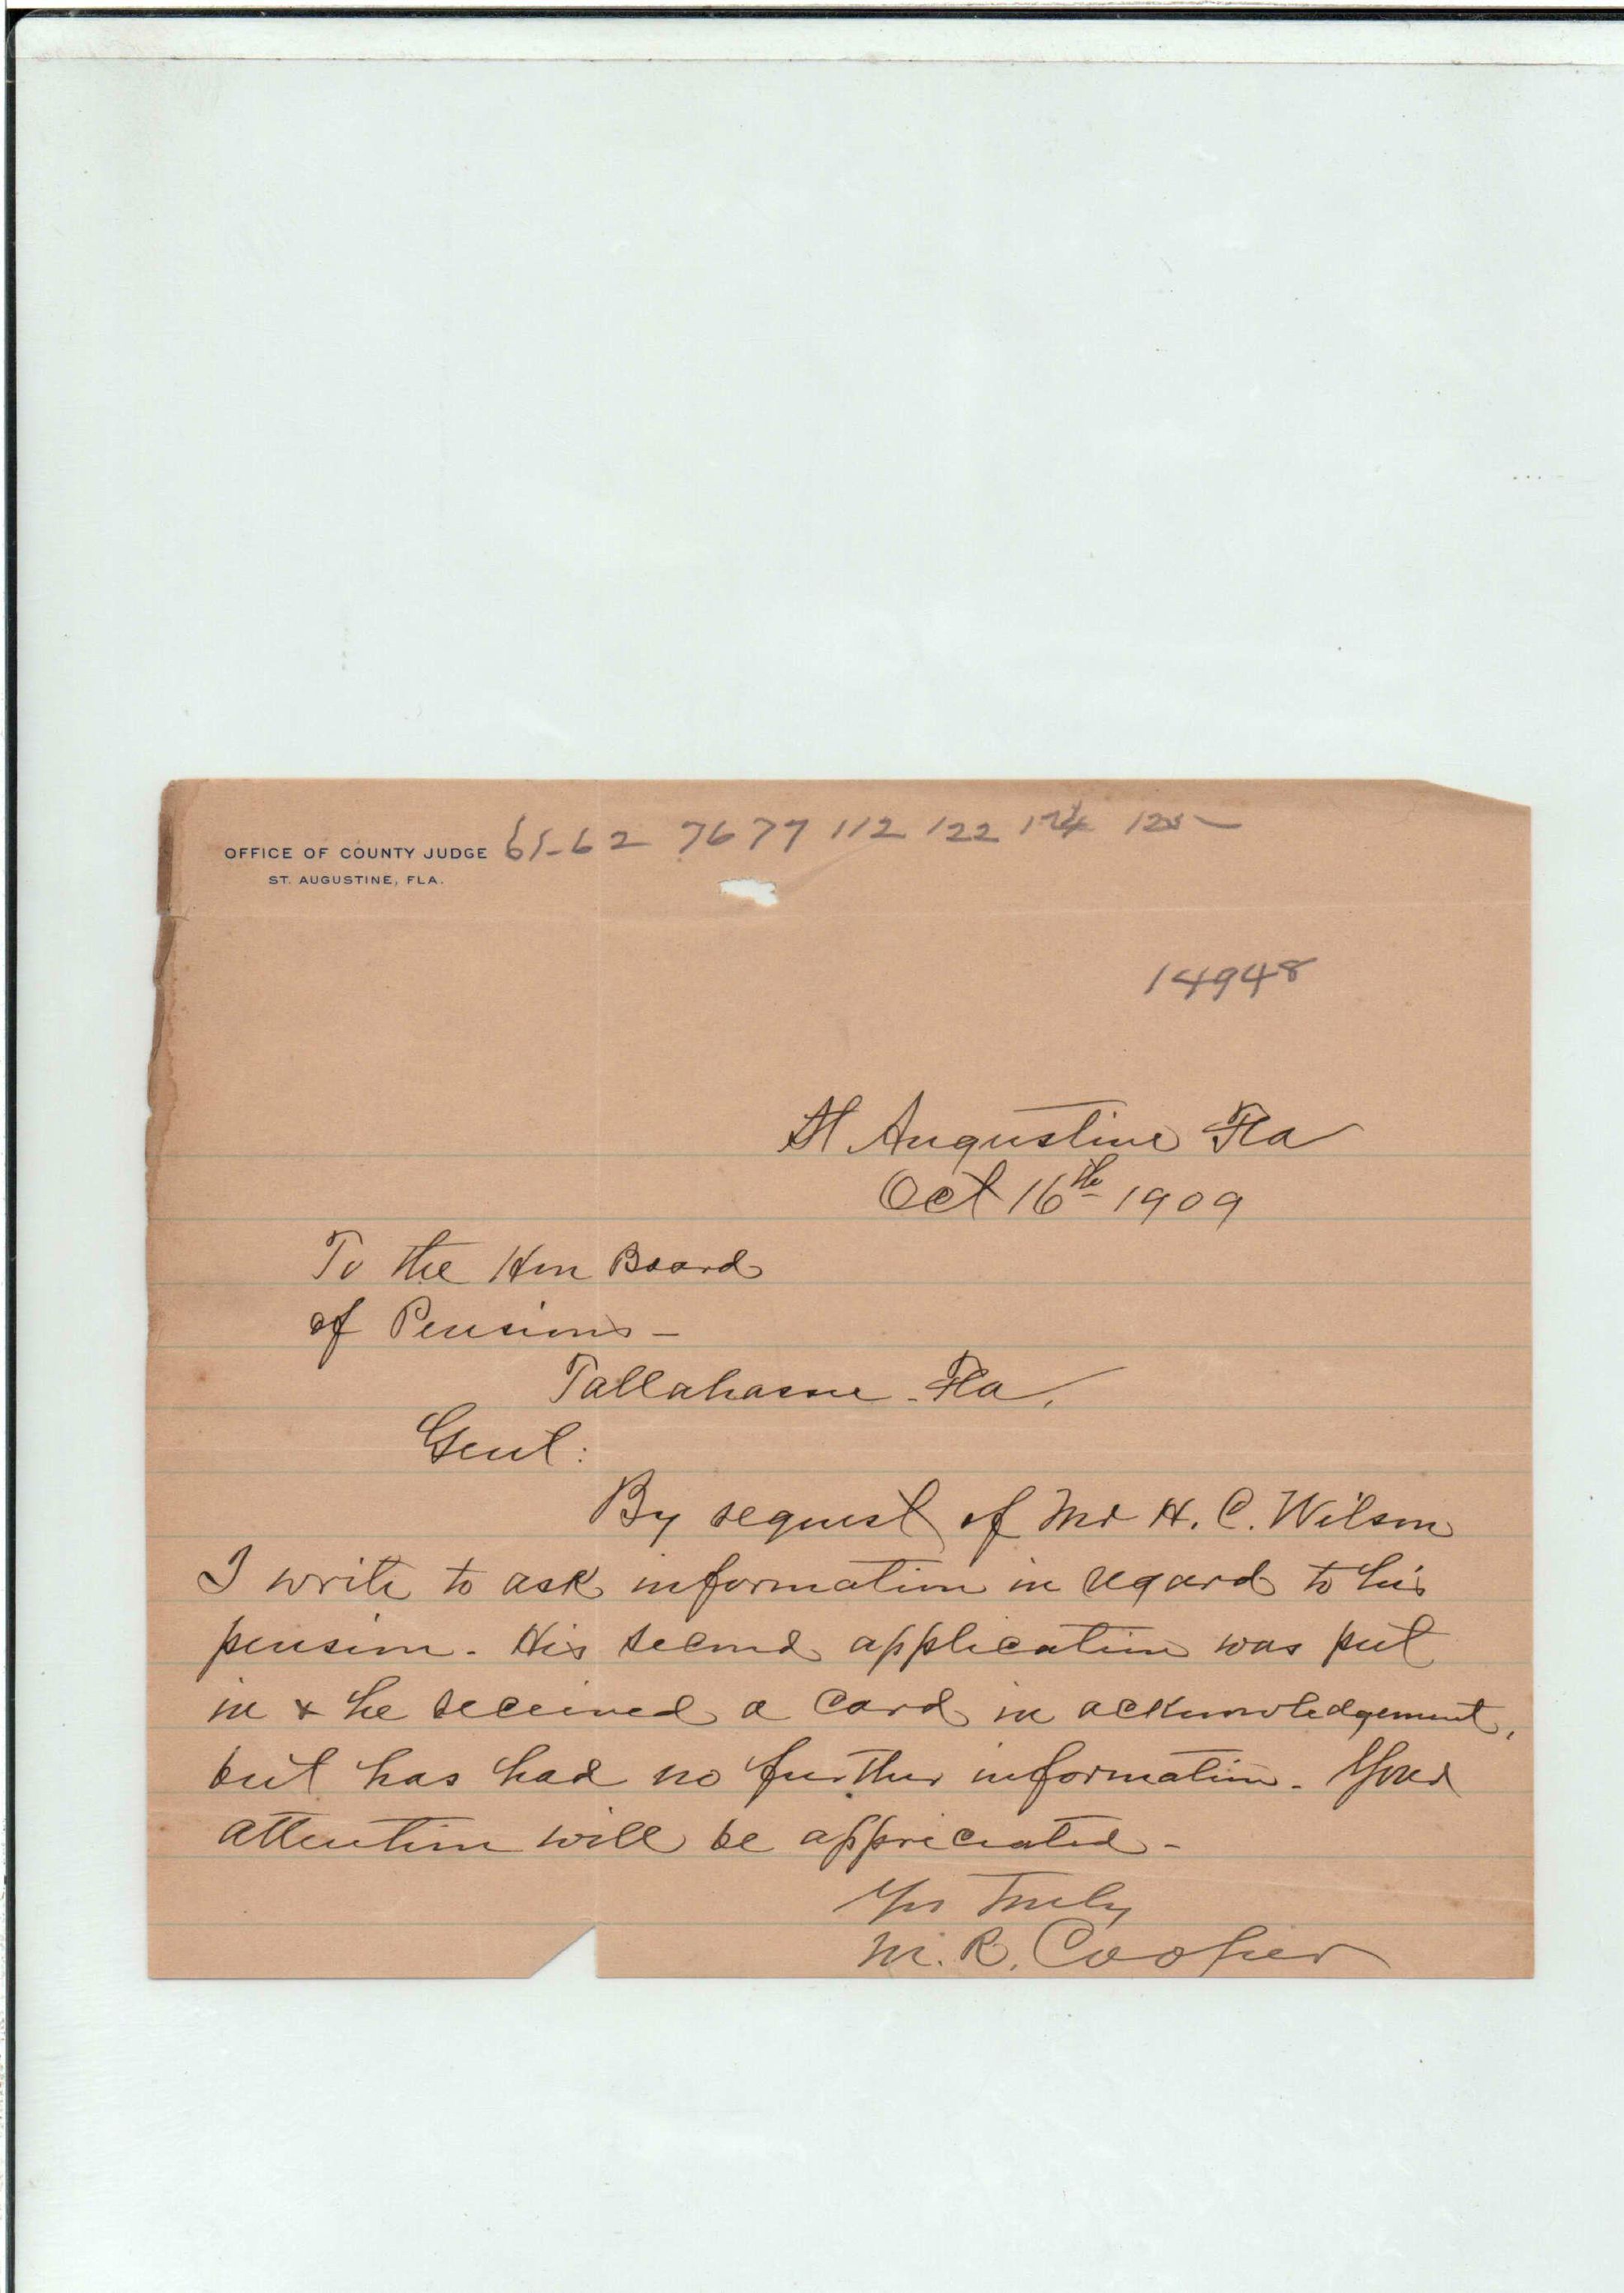 OFFICE OF COUNTY JUDGE
ST. AUGUSTINE, FLA.
61-62 76 77 112 122 124 125
14948
St. Augustine Fla
Oct 16th 1909
To the Hon Board
of Pensions -
Tallahassee - Fla.
Gent:
By request of Mr H. C. Wilson
I write to ask information in regard to his
pension. His second application was put
in & he received a card in acknowledgement,
but has had no further information. Your
attention will be appreciated -
Yrs Truly
M. R. Cooper